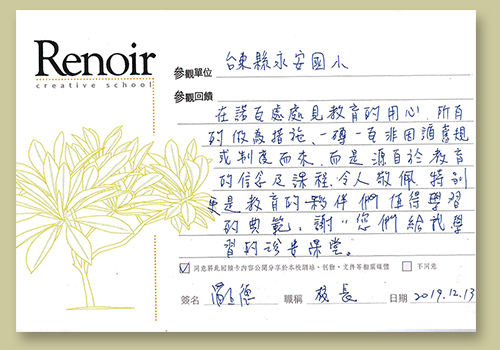 Renoir
creative school
參觀單位 台東縣永安國小
參觀回饋
在諾瓦處處見教育的用心,所有
的作為措施、一磚一瓦非因循舊規
或制度而來,而是源自於教育
的信念及課程,令人敬佩,特別
更是教育的夥伴們值得學習
的典範,謝〃您們給我學
習的 課堂。
同意將此回饋卡內容公開分享於本校網站、刊物、文件等相關媒體 不同意
簽名 職稱 校長 日期 2019.12.13